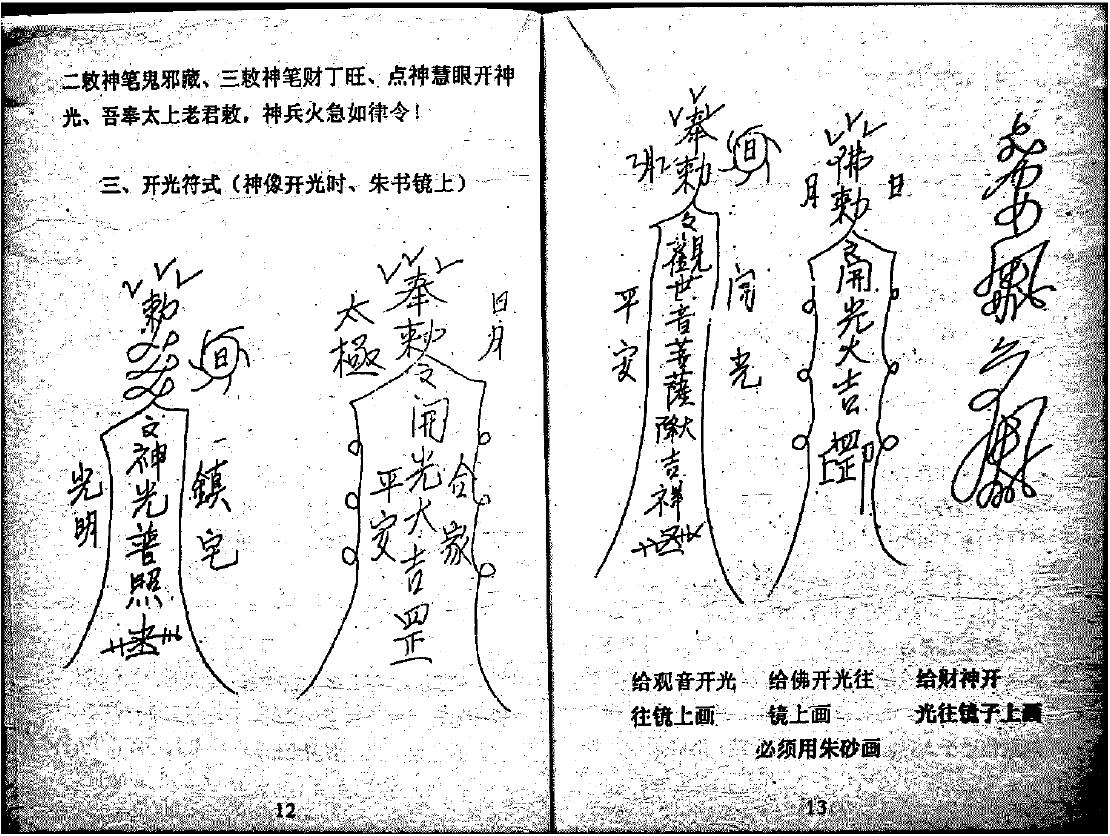 二敕神笔鬼邪藏、三敕神笔财丁旺、点神慧眼开神
光、吾奉太上老君敕，神兵火急如律令！
三、开光符式（神像开光时、朱书镜上）
勅
日
令神光普照
光明
鎮宅
奉勅令開光大吉罡
太極
日月
平安
合家
12
奉勅令觀世音菩薩降大吉祥
日
平安
開光
佛勅
月
日
開光大吉罡印
给观音开光
往镜上画
给佛开光往
镜上画
给财神开
光往镜子上画
必须用朱砂画
13